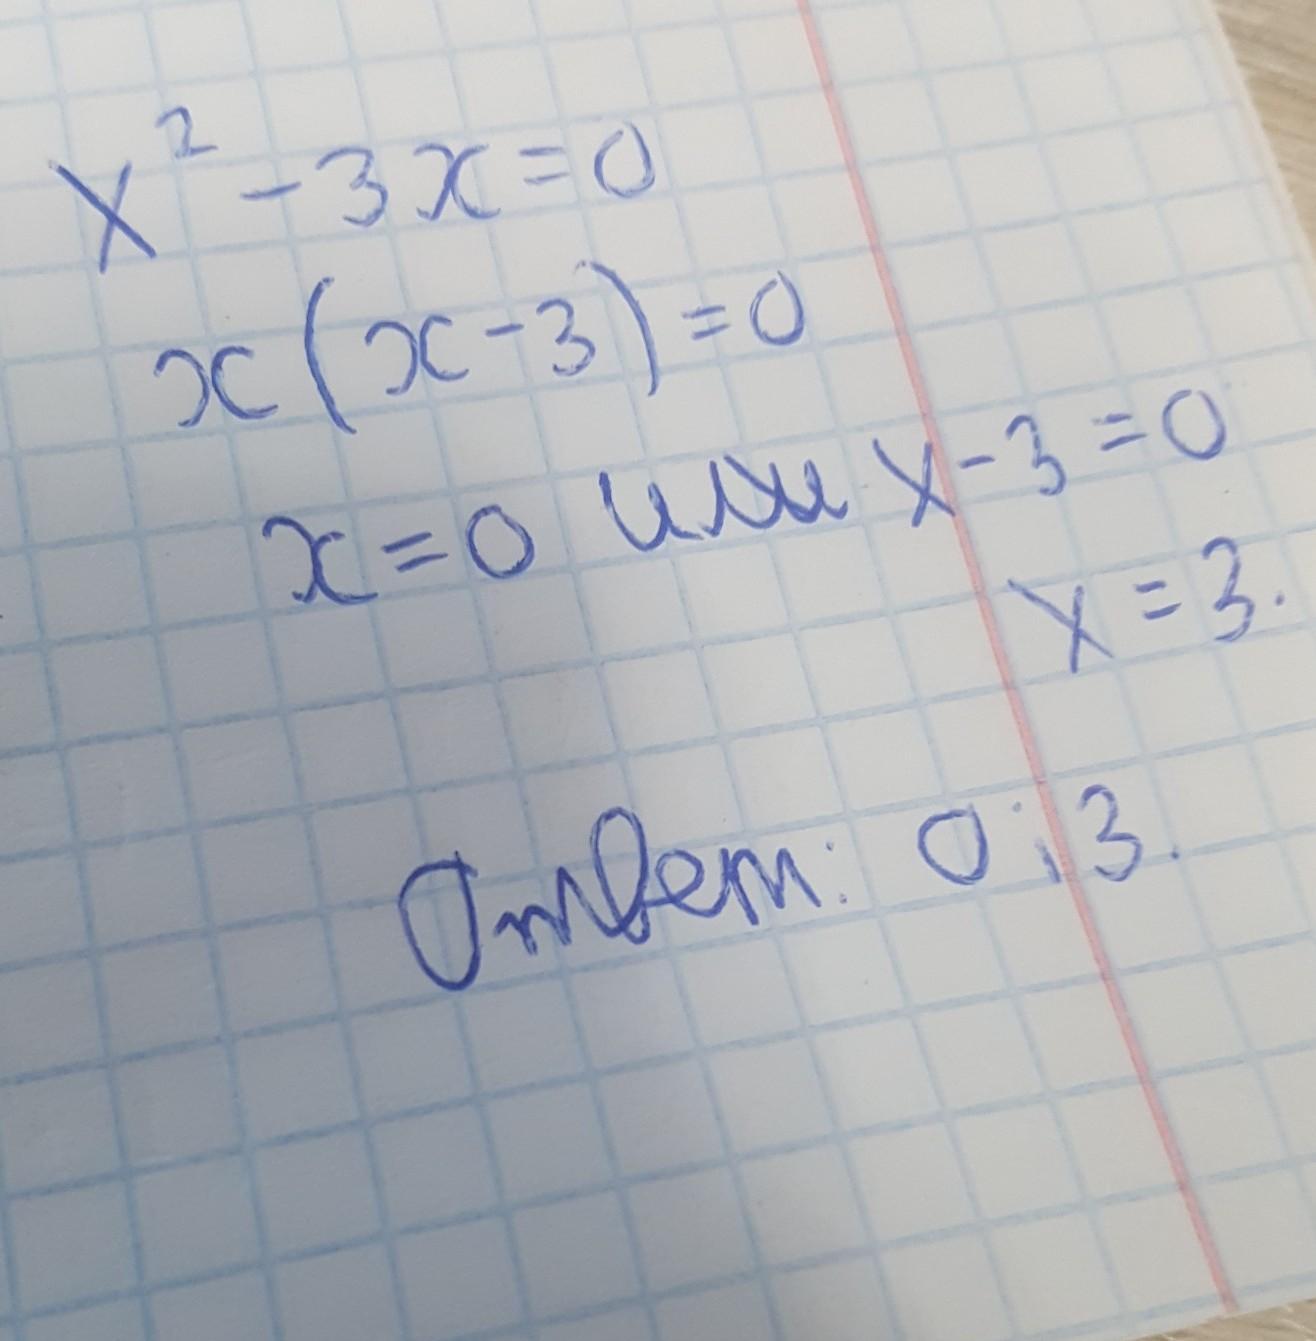 x² - 3x = 0
x(x-3) = 0
x = 0 или x - 3 = 0
x = 3.
Ответ: 0; 3.